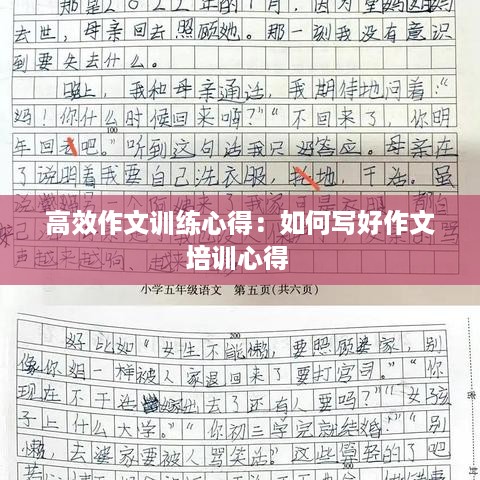 是2022年的1月，因为
去世，母亲回去照顾她。那一刻我没有意识
到要失去什么。
晚上，我和母亲通话，我期待地问着：“
妈！你什么时候回来呀？”“不回来了，你明
100
年回去吧。”听到这句话我只没答应。母亲在
了说明着我要自己洗衣服，拖地，干活。虽
高效作文训练心得：如何写好作文
培训心得
声越来越响、越来越
小学五年级语文 第五页(共六页)
200
好比如“女生不能懒，要照顾婆家，别
像你姐一样被人家退回来了要打官司。”“你
现在不干活嫁出去了还有人要吗？”“女孩
子上什么大学。”“你初三学完就结婚！”“别
懒，去婆家要被人骂笑话。”这些算轻的了吧